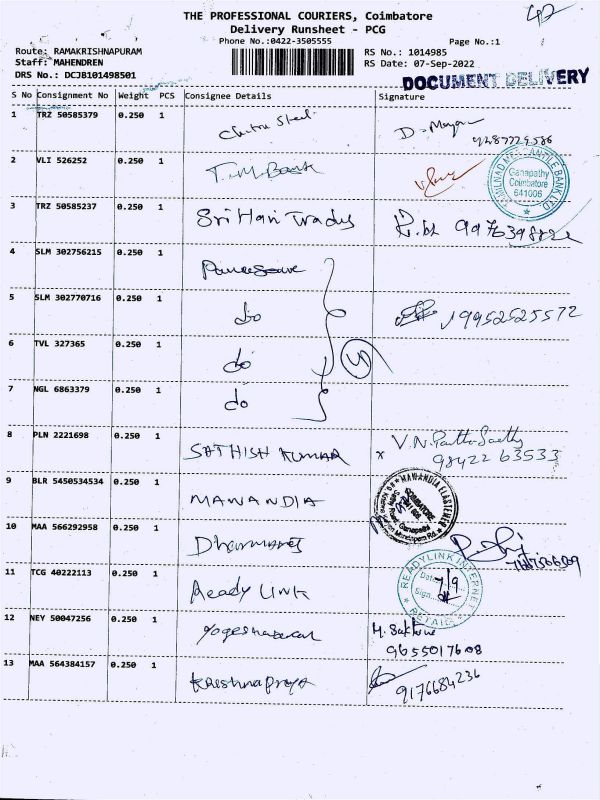 THE PROFESSIONAL COURIERS, Coimbatore
Delivery Runsheet - PCG
Phone No.:0422-3505555 Page No.:1
Route: RAMAKRISHNAPURAM RS No.: 1014985
Staff: MAHENDREN RS Date: 07-Sep-2022
DRS No.: DCJB101498501 DOCUMENT DELIVERY
S No Consignment No Weight PCS Consignee Details Signature
1 TRZ 50585379 0.250 1 Chitra Steel
2 VLI 526252 0.250 1 T.M.Bank
TAMILNAD MERCANTILE BANK LTD
Ganapathy
Coimbatore
641006
3 TRZ 50585237 0.250 1 Sri Hari Tradrs
4 SLM 302756215 0.250 1
5 SLM 302770716 0.250 1 do 19952525572
6 TVL 327365 0.250 1 do
7 NGL 6863379 0.250 1 do
8 PLN 2221698 0.250 1 SATHISH KUMAR x
98422 63533
9 BLR 5450534534 0.250 1 MAWANDIA
10 MAA 566292958 0.250 1
11 TCG 40222113 0.250 1 Ready Link
READYLINK INTERNET
Date 7/9
Sign
12 NEY 50047256 0.250 1
9655017608
13 MAA 564384157 0.250 1 Krishnapriya 9176684236